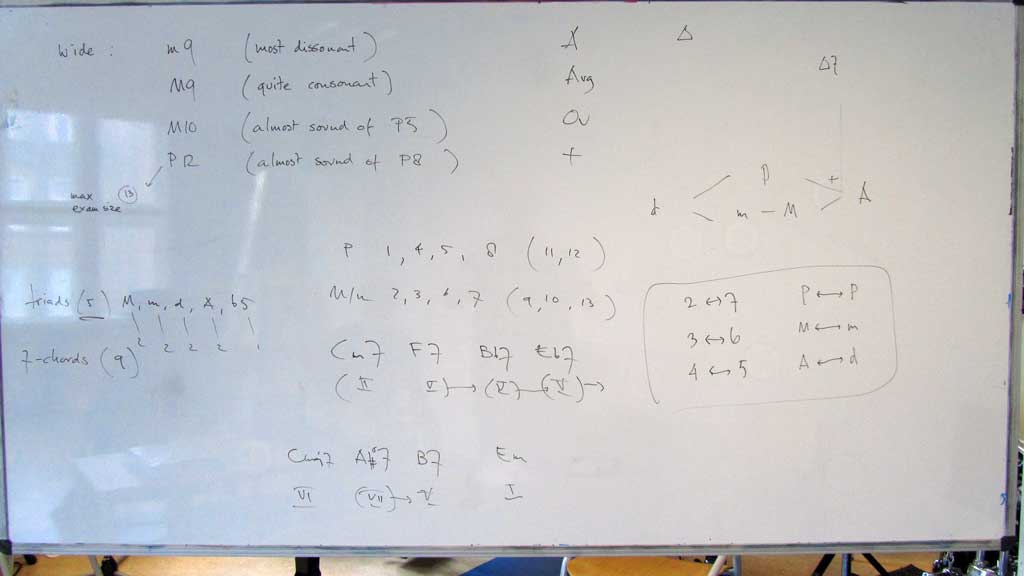 Wide : m9 (most dissonant) A Δ
M9 (quite consonant) Avg Δ7
M10 (almost sound of P5) Ov
P12 (almost sound of P8) +
max 13
exam size
P +
d m – M A
P 1, 4, 5, 8 (11, 12)
M/m 2, 3, 6, 7 (9, 10, 13)
triads (5) M, m, d, A, b5
2 2 2 2 1
7-chords (9)
2 ↔ 7 P ↔ P
3 ↔ 6 M ↔ m
4 ↔ 5 A ↔ d
Cm7 F7 Bb7 Eb7
(II V) → (V) → (V) →
Cmaj7 B7 Em
VI (VII) → V I